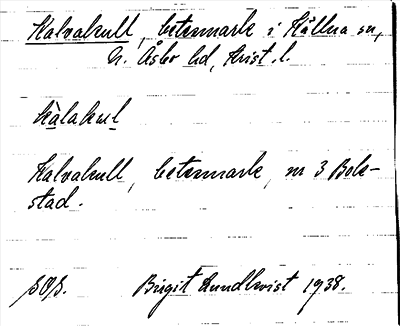 Kalvakull, betesmark i Källna sn,
N. Åsbo hd, Krist. l.
kàlakul
Kalvakull, betesmark, nr 3 Bok-
stad.
Birgit Lundkvist 1938.